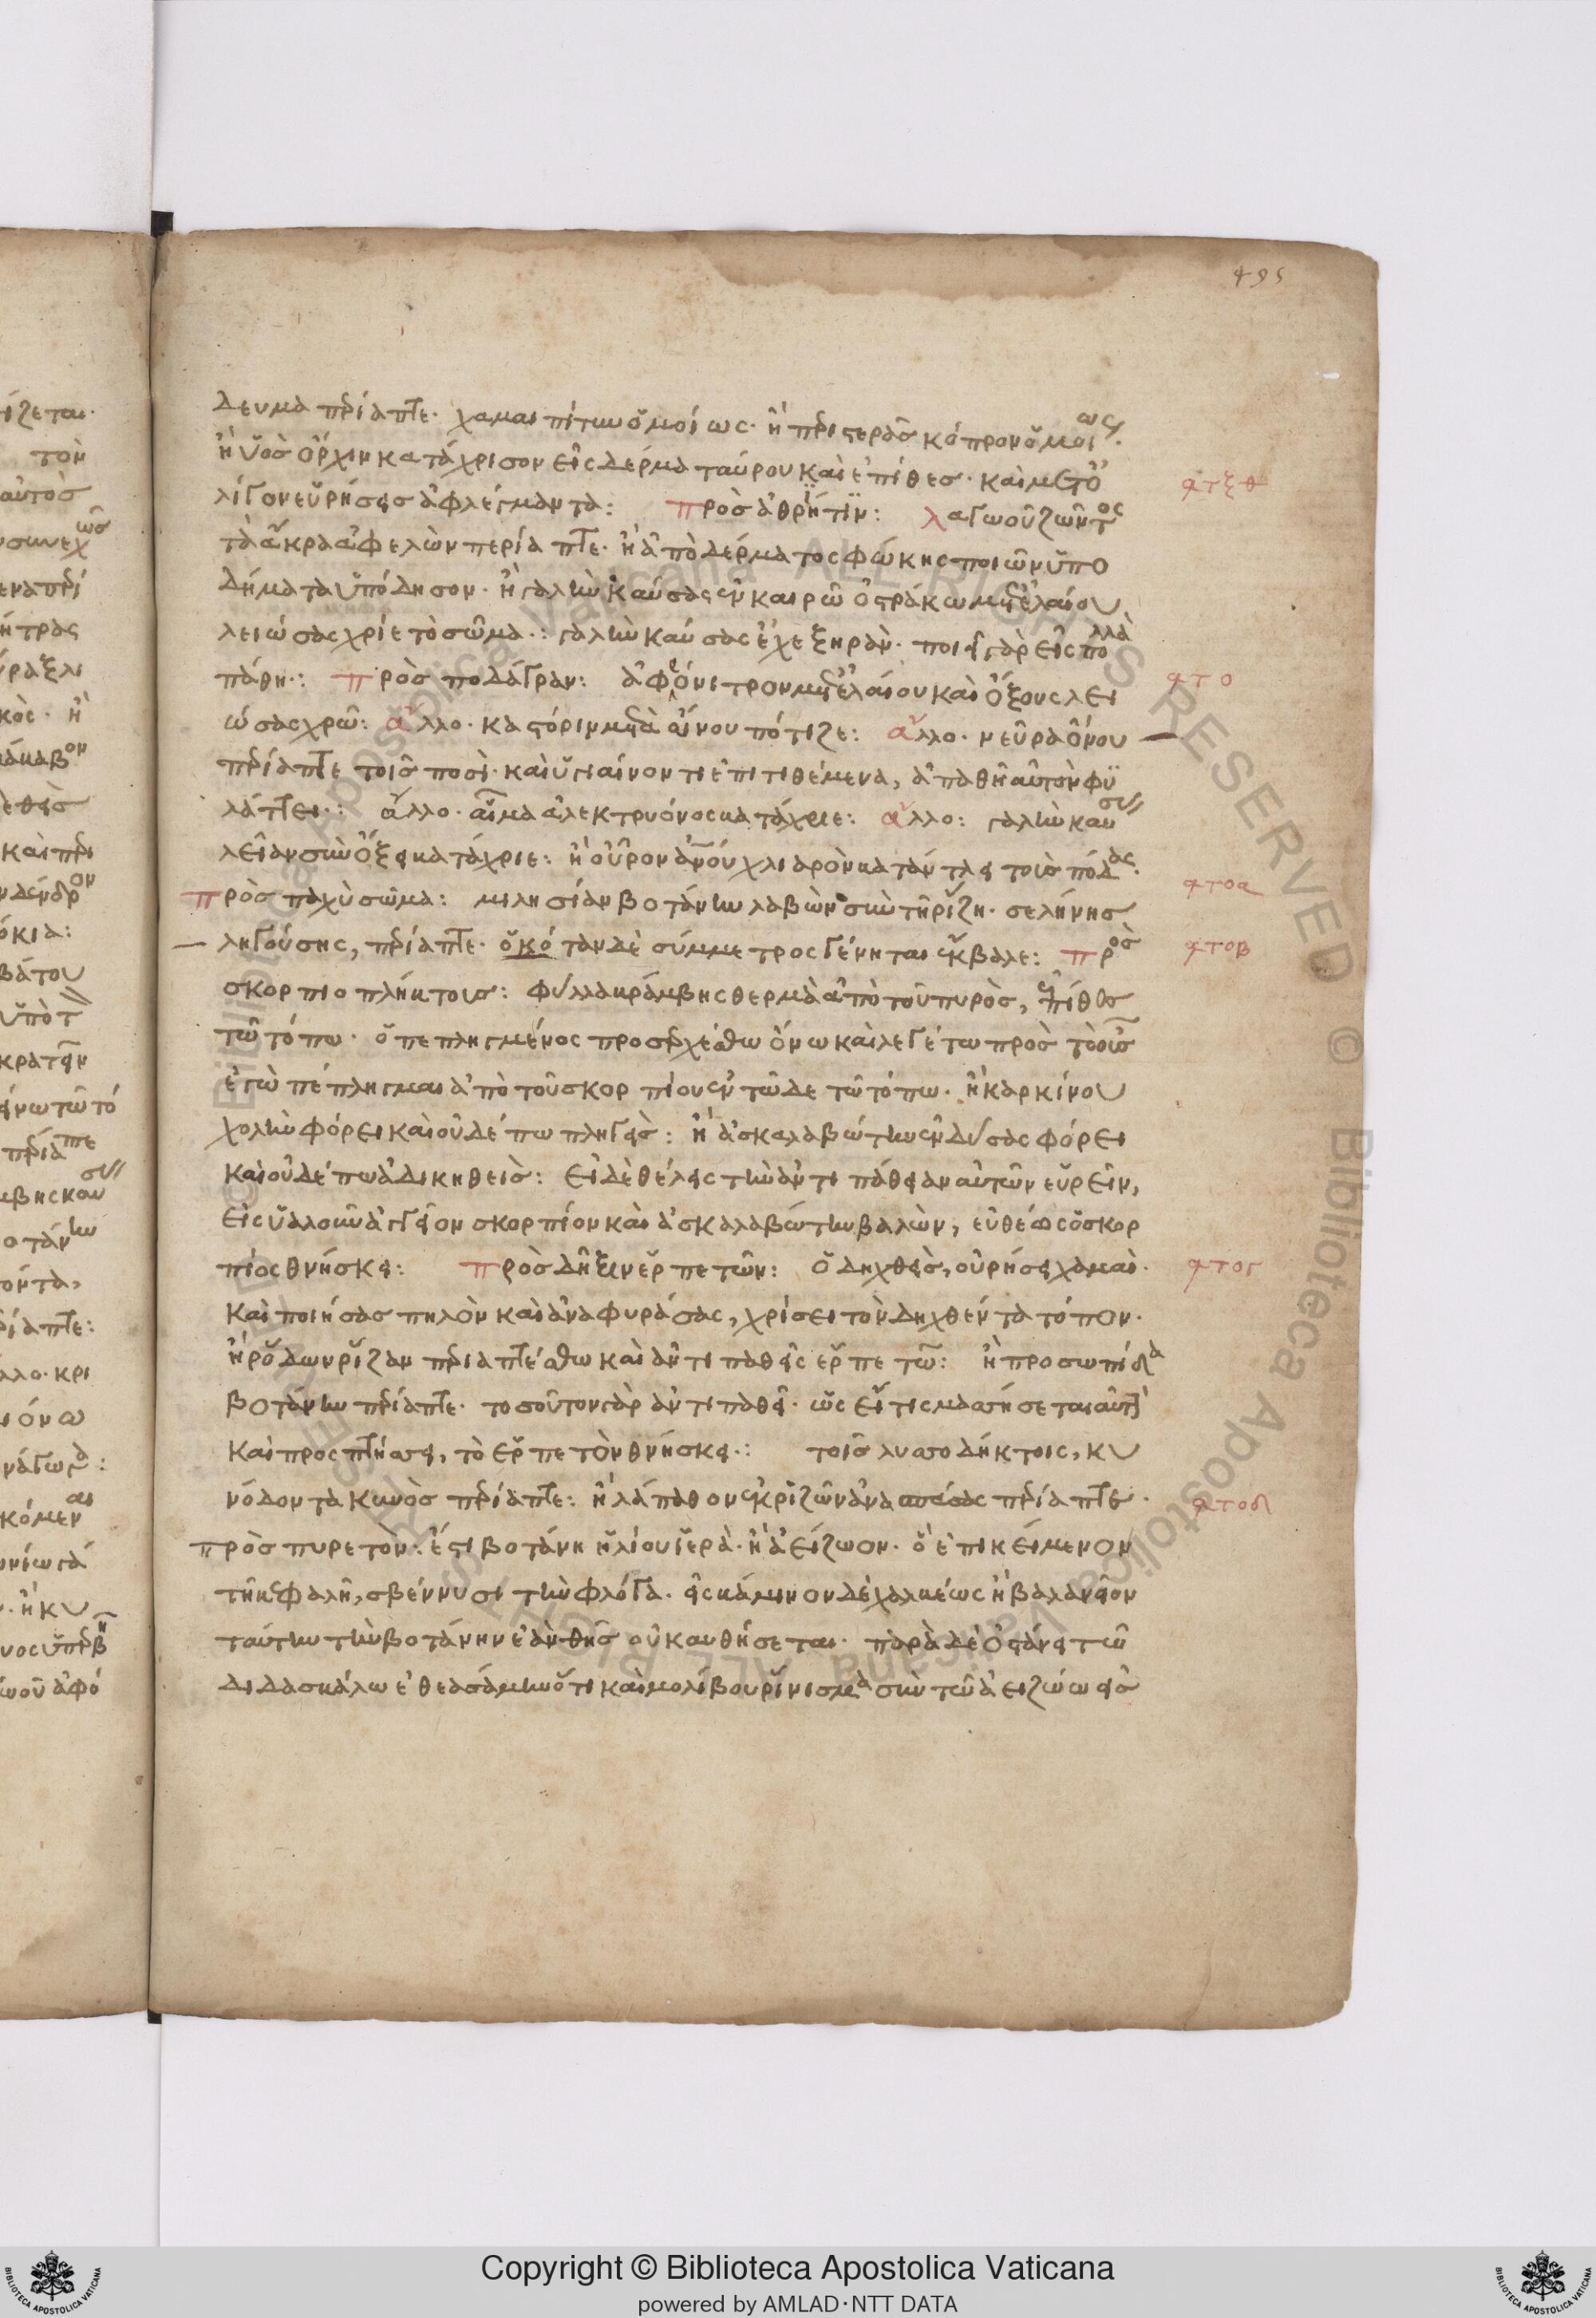 495
δευμα περίαπτε· χαμαιπίτυν ὁμοίως· ἢ περιστερᾶς κόπρον ὁμοίως·
ἢ ὑὸς ὄρχιν κατάχρισον εἰς δέρμα ταύρου καὶ ἐπίθες· καὶ μετ' ὀ
λίγον εὑρήσεις ἀφλέγμαντα: πρὸς ἀθρῆτιν: λαγωοῦ ζῶντος
τὰ ἄκρα ἀφελὼν περίαπτε· ἢ ἀπὸ δέρματος φώκης ποιῶν ὑπο
δήματα ὑπόδησον· ἢ γαλῆν καύσας ἐν καιρῶ ὀστράκω μετ' ἐλαίου
λειώσας χρίε τὸ σῶμα·: γαλῆν καύσας ἔχε ξηράν· ποιεῖ γὰρ εἰς πολλὰ
πάθη·: πρὸς ποδάγραν: ἀφρόνιτρον μετ' ἐλαίου καὶ ὄξους λει
ώσας χρῶ: ἄλλο· καστόριν μετὰ οἴνου πότιζε: ἄλλο· νεῦρα ὄνου
περίαπτε τοῖς ποσὶ· καὶ ὑγιαίνοντι ἐπιτιθέμενα, ἀπαθῆ αὐτὸν φυ
λάττει·: ἄλλο· αἷμα ἀλεκτρυόνος κατάχριε: ἄλλο: γαλῆν καύσας
λείαν σὺν ὄξει κατάχριε: ἢ οὖρον ἀνου χλιαρὸν κατάντλει τοὺς πόδας·
πρὸς παχὺ σῶμα: μιλησίαν βοτάνην λαβὼν σὺν τῆ ρίζη· σελήνης
ληγούσης, περίαπτε· ὁκόταν δὲ σύμμετρος γένηται ἔκβαλε: πρὸς
σκορπιοπλήκτους: φύλλα κράμβης θερμὰ ἀπὸ τοῦ πυρὸς, ἐπίθες
τῶ τόπω· ὁ πεπληγμένος προσερχέσθω ὄνω καὶ λεγέτω πρὸς τὸ οὖς
ἐγὼ πέπληγμαι ἀπὸ τοῦ σκορπίου ἐν τῶδε τῶ τόπω· ἢ καρκίνου
χολὴν φόρει καὶ οὐδέπω πληγεὶς: ἢ ἀσκαλαβώτην ἐνδύσας φόρει
καὶ οὐδέπω ἀδικηθεὶς: εἰ δὲ θέλεις τὴν ἀντιπάθειαν αὐτῶν εὑρεῖν,
εἰς ὑαλοῦν ἀγγεῖον σκορπίον καὶ ἀσκαλαβώτην βαλὼν, εὐθέως ὁ σκορ
πίος θνήσκει: πρὸς δῆξιν ἑρπετῶν: ὁ δηχθεὶς, οὐρήσει χαμαὶ·
καὶ ποιήσας πηλὸν καὶ ἀναφυράσας, χρίσει τὸν δηχθέντα τόπον·
ἢ ῥόδων ῥίζαν περιαπτέσθω καὶ ἀντιπαθεῖς ἑρπετῶν: ἢ προσωπίδα
βοτάνην περίαπτε· τοσοῦτον γὰρ ἀντιπαθεῖ· ὡς εἴ τις μασήσεται αὐτὴν
καὶ προσπτήσει, τὸ ἑρπετὸν θνήσκει·: τοῖς λυσσοδήκτοις, κυ
νόδοντα κυνὸς περίαπτε: ἢ λάπαθον ἐκριζῶν ἀνασπάσας περίαπτε·
πρὸς πυρετὸν: ἔστι βοτάνη ἡλίου ἱερὰ· ἢ ἀείζωον· ὃ ἐπικείμενον
τῆ κεφαλῆ, σβέννυσι τὴν φλόγα· εἰς κάμινον δὲ χαλκέως ἢ βαλανεῖον
ταύτην τὴν βοτάνην ἐὰν θῆς οὐ καυθήσεται· παρὰ δὲ ὀστάνει τῶ
διδασκάλω ἐθεασάμην ὅτι καὶ μολίβου ῥίνισμα σὺν τῶ ἀειζώω εἰσ
φτξθ
φτο
φτοα
φτοβ
φτογ
φτοδ
Copyright © Biblioteca Apostolica Vaticana
powered by AMLAD·NTT DATA